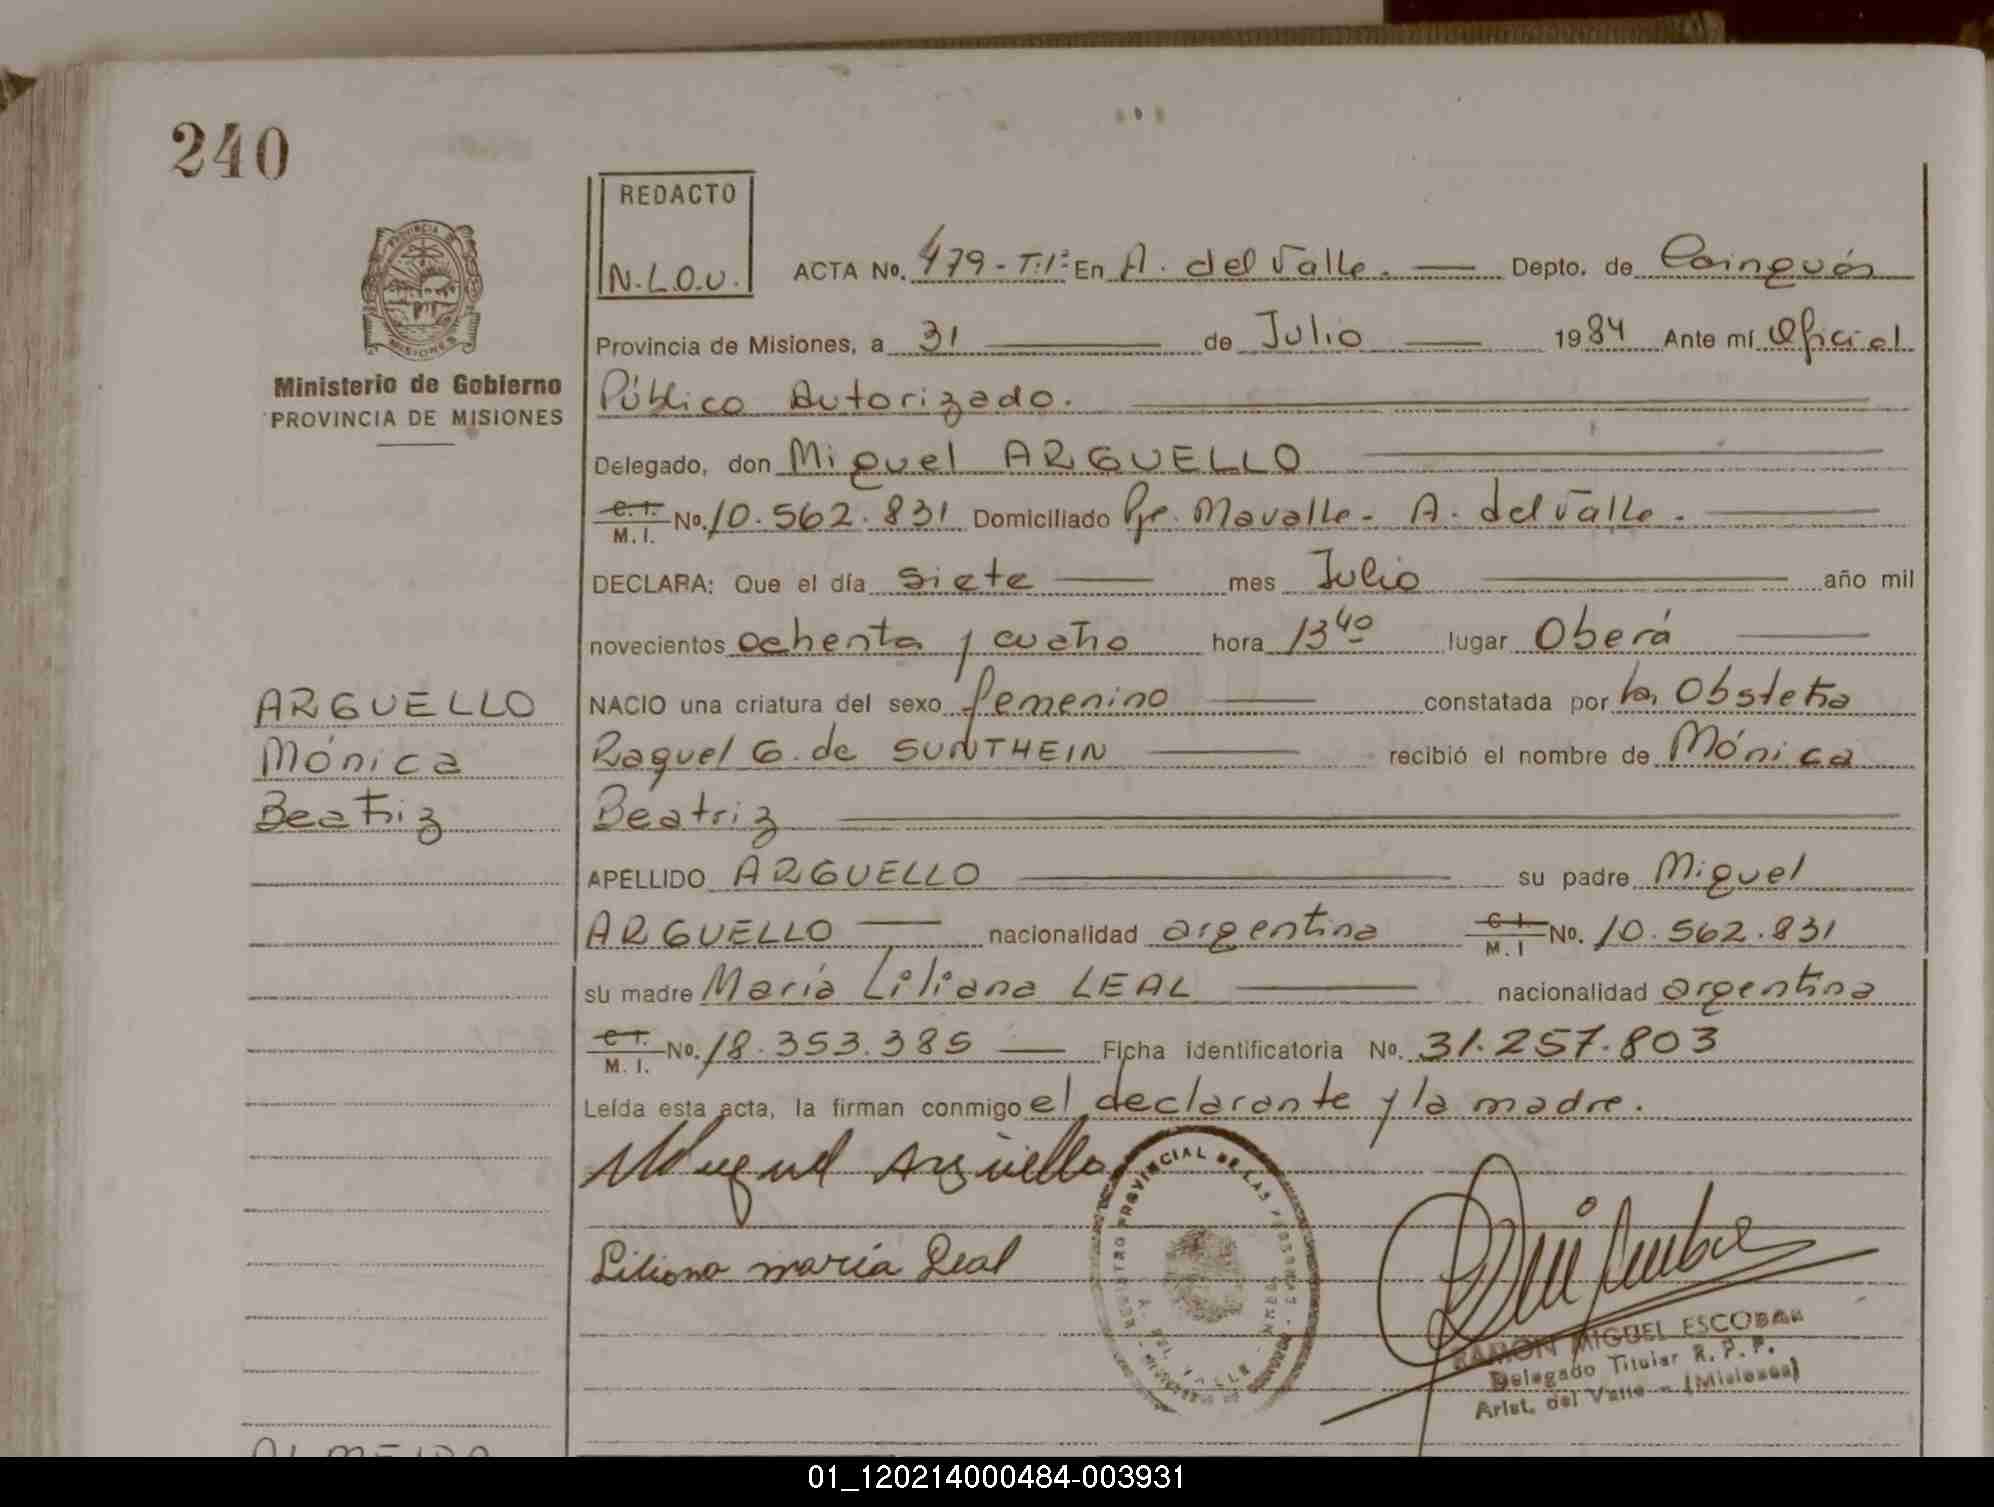 240
REDACTO
N.L.O.U.
PROVINCIA DE
MISIONES
Ministerio de Gobierno
PROVINCIA DE MISIONES
ACTA No. 479-T:1º En A. del Valle. Depto. de Cainguás
Provincia de Misiones, a 31 de Julio 1984 Ante mí Oficial
Público Autorizado.
Delegado, don Miguel ARGUELLO
C.I. M.I. No. 10.562.831 Domiciliado Pje. Mavalle- A. del Valle.
DECLARA: Que el día siete mes Julio año mil
novecientos ochenta y cuatro hora 13 40 lugar Oberá
NACIO una criatura del sexo femenino constatada por la Obstetra
Raquel G. de SUNTHEIN recibió el nombre de Mónica
Beatriz
APELLIDO ARGUELLO su padre Miguel
ARGUELLO nacionalidad argentina C.I. M.I No. 10.562.831
su madre María Liliana LEAL nacionalidad argentina
C.I. M.I. No. 18.353.385 Ficha identificatoria No. 31.257.803
Leída esta acta, la firman conmigo el declarante y la madre.
ARGUELLO
Mónica
Beatriz
Miguel Argüello
Liliana maría Leal
REGISTRO PROVINCIAL DE LAS PERSONAS
A. DEL VALLE
RAMON MIGUEL ESCOBAR
Delegado Titular R. P. P.
Arist. del Valle - (Misiones)
ALMEIDA
01_120214000484-003931